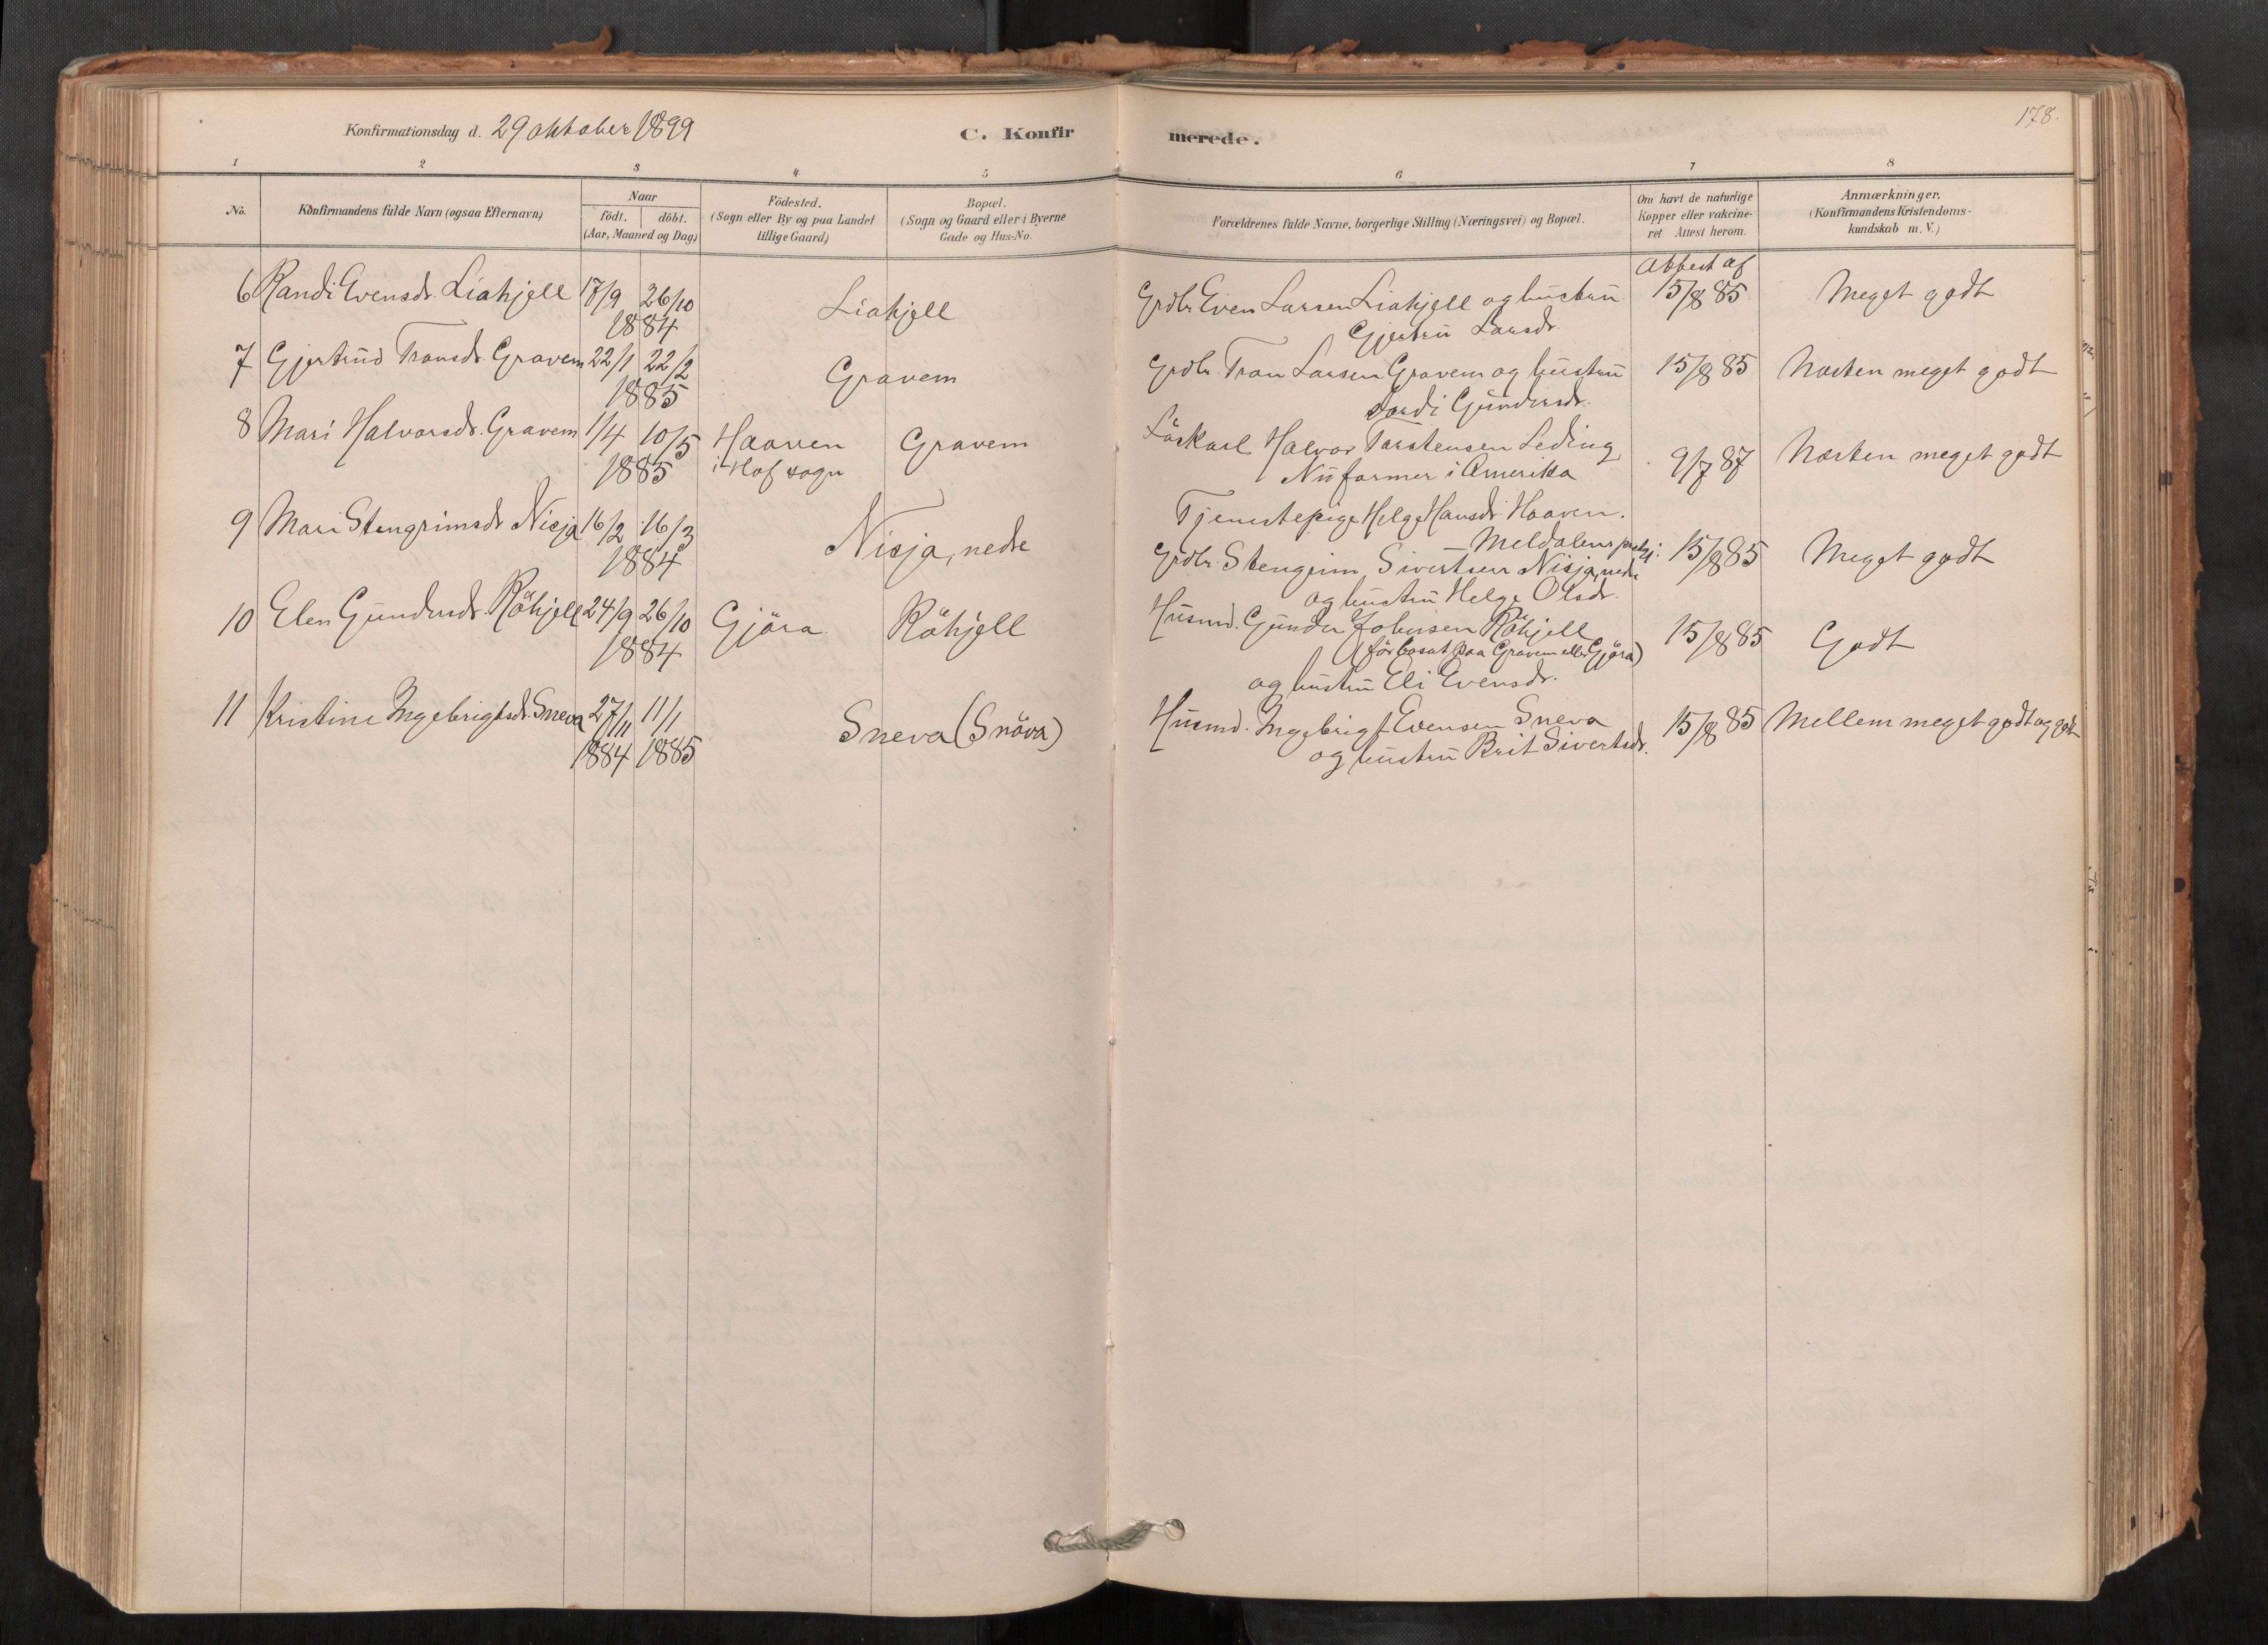 178.
Konfirmationsdag d. 29 oktober 1899
C. Konfirmerede.
1 2 3 4 5 6 7 8
No.
Konfirmandens fulde Navn (ogsaa Efternavn)
Naar
födt. döbt.
(Aar, Maaned og Dag)
Födested.
(Sogn eller By og paa Landet
tillige Gaard)
Bopæl.
(Sogn og Gaard eller i Byerne
Gade og Hus-No.
Forældrenes fulde Navne, borgerlige Stilling (Næringsvei) og Bopæl.
Om havt de naturlige
Kopper eller vakcine-
ret Attest herom.
Anmærkninger.
(Konfirmandens Kristendoms-
kundskab m. V.)
Attest af
6 Randi Evensdr. Liahjell 17/9 26/10 Liahjell Grdbr. Even Larsen Liahjell og hustru 15/8 85 Meget godt
1884 Gjertru Larsdr.
7 Gjertrud Tronsdr. Gravem 22/1 22/2 Gravem Grdbr. Tron Larsen Gravem og hustru 15/8 85 Næsten meget godt
1885 Gundersdr.
8 Mari Halvorsdr. Gravem 1/4 10/5 Haaven Gravem Löskarl Halvor Torstensen Leding 9/7 87 Næsten meget godt
1885 i Hof sogn Nu farmer i Amerika
Tjenestepige Helge Hansdr. Haaven.
Meldalens prstgj.
9 Mari Stengrimsdr Nisja 16/2 16/3 Nisja, nedre Grdbr. Stengrim Sivertsen Nisja, nedre 15/8 85 Meget godt
1884 og hustru Helge Olsdr.
10 Elen Gundersdr. Röhjell 24/9 26/10 Gjöra Röhjell Husmd. Gunder Johnsen Röhjell 15/8 85 Godt
1884 (för bosat paa Gravem eller Gjöra)
og hustru Eli Evensdr.
11 Kristine Ingebrigtsdr. Sneva 27/11 11/1 Sneva (Snöva) Husmd. Ingebrigt Evensen Sneva 15/8 85 Mellem meget godt og godt
1884 1885 og hustru Brit Sivertsdr.